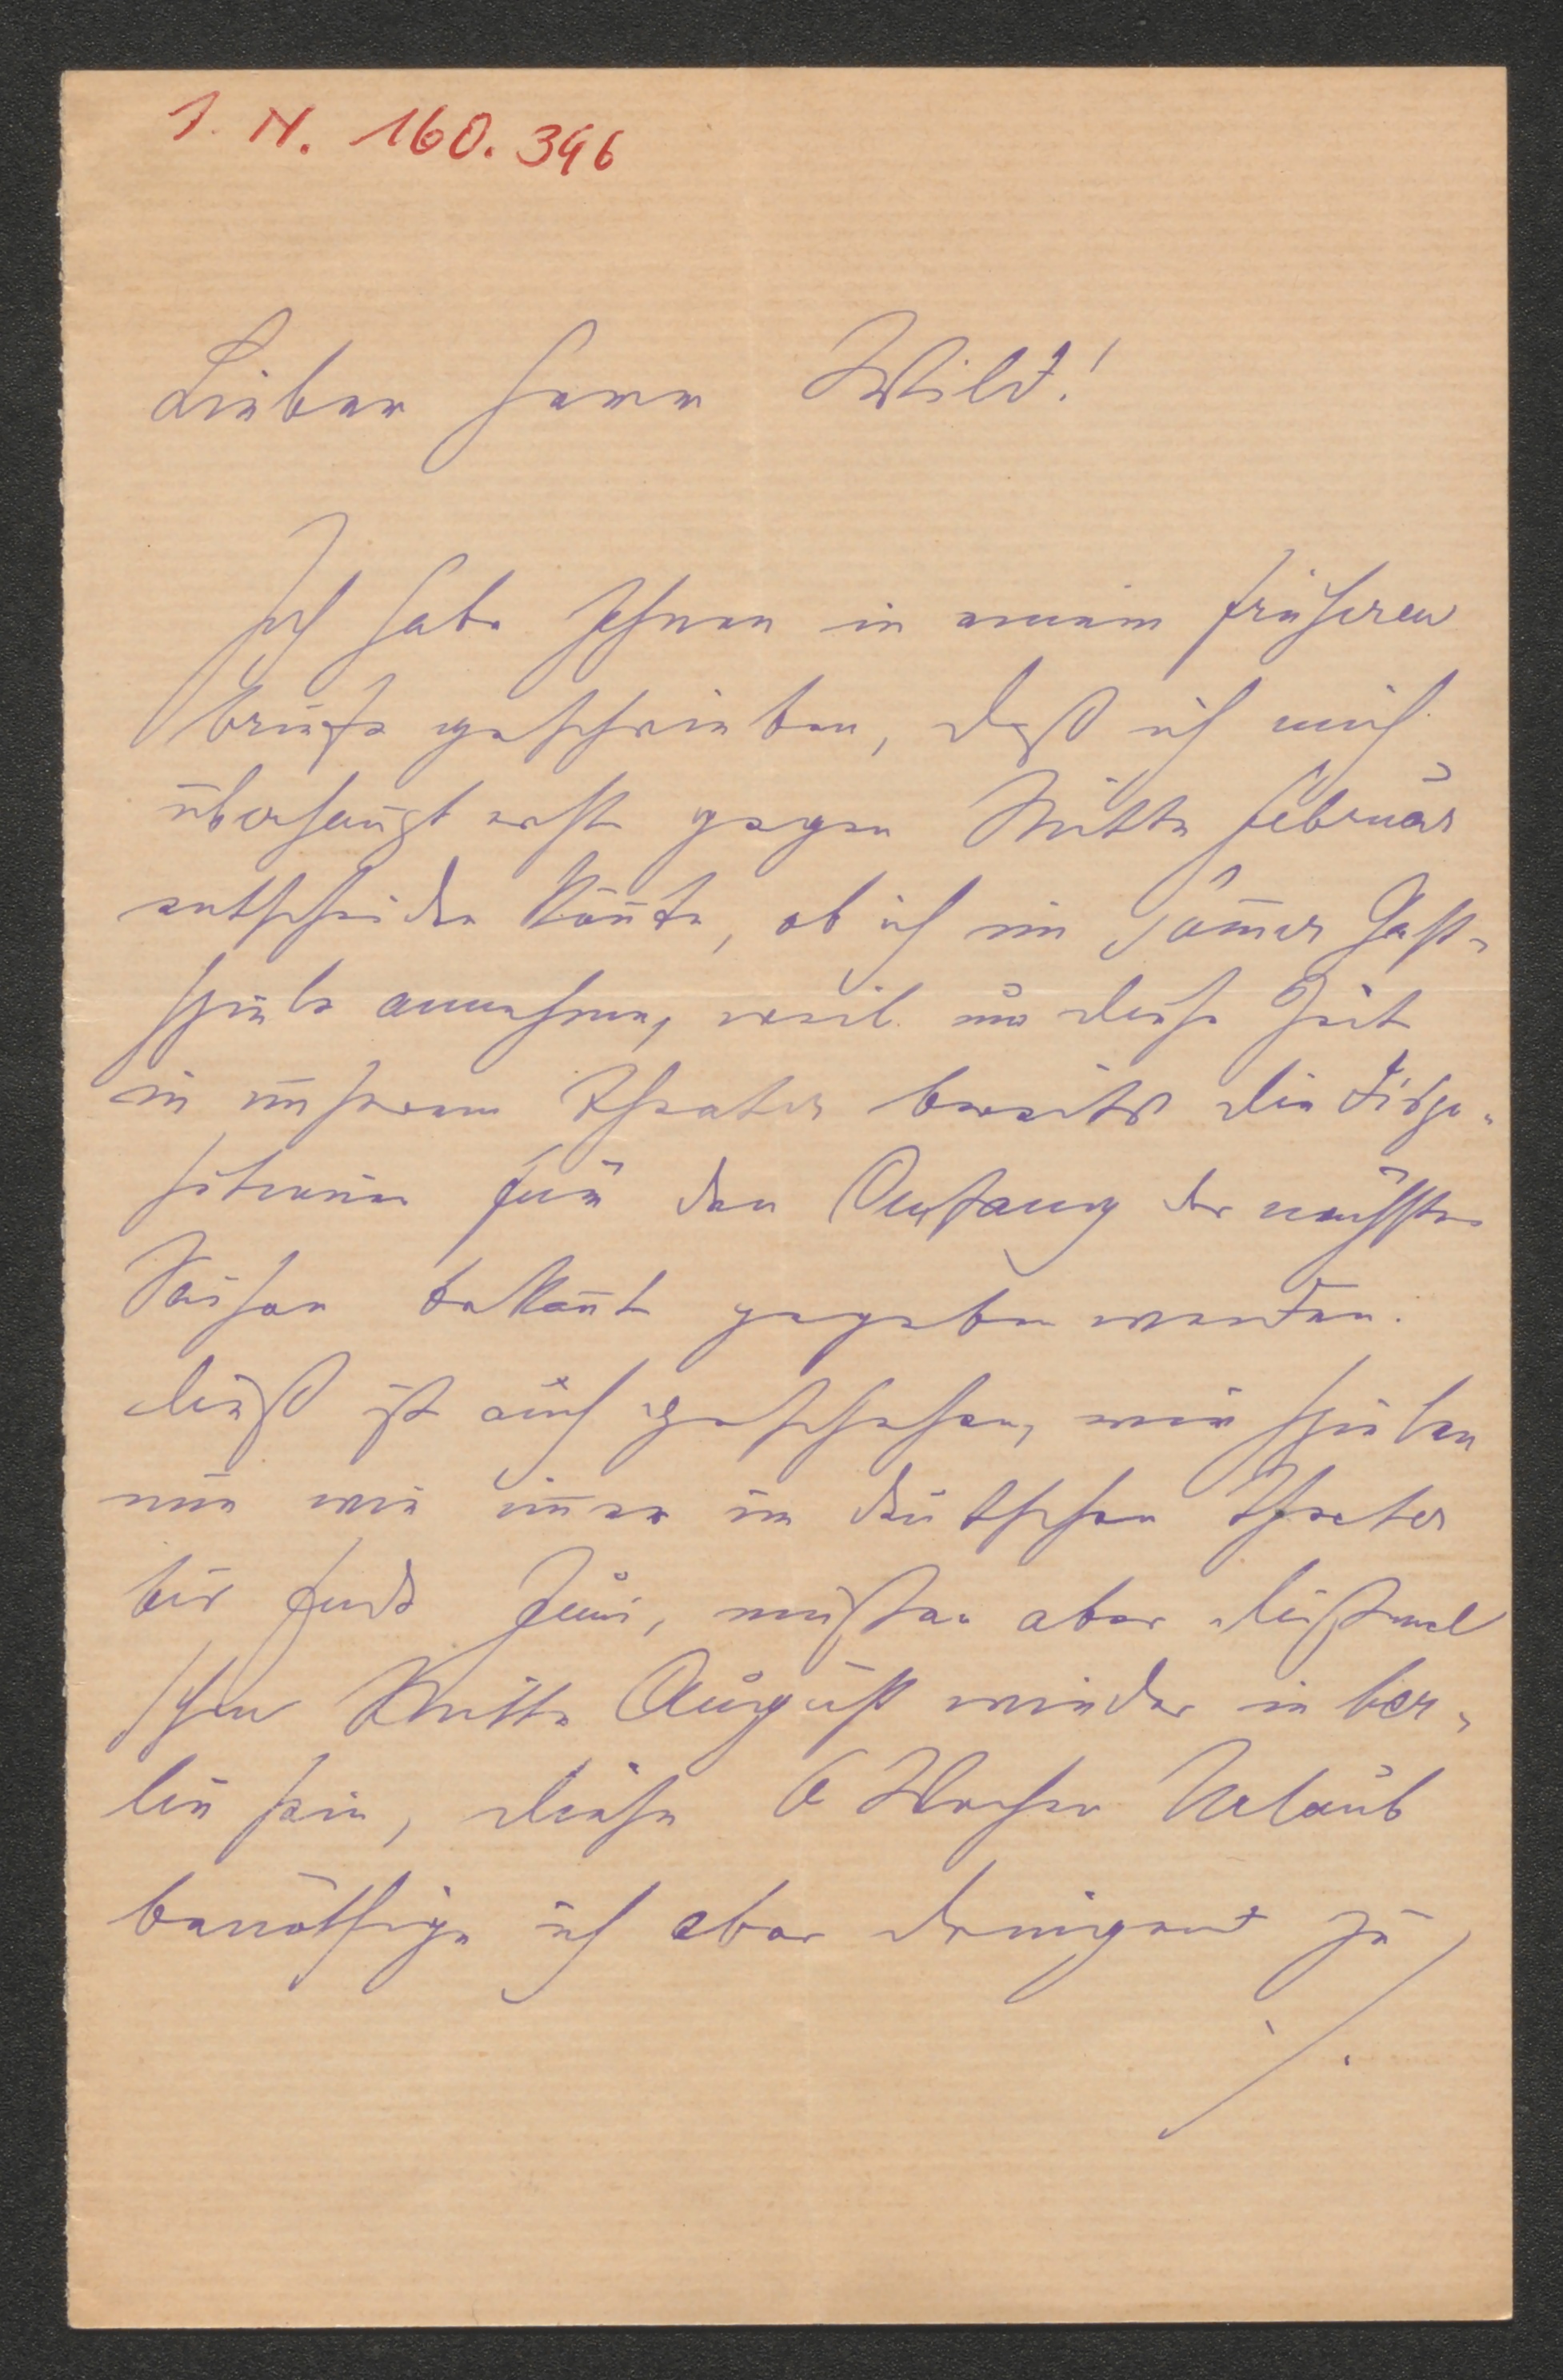 I. N. 160.396
Lieber Herr Wild!
Ich habe Ihnen in meinem früheren
Briefe geschrieben, daß ich mich
überhaupt erst gegen Mitte Februar
entscheiden kañ, ob ich im Som̄er Gast-
spiele annehme, weil um diese Zeit
in unserem Theater bereits die Dispo-
sitionen für den Anfang der nächsten
Saison bekan̄t gegeben werden.
Dieß ist auch geschehen, wir spielen
nun wie im̄er im deutschen Theater
bis Ende Juni, müssen aber dießmal
schon Mitte August wieder in Ber-
lin sein, diese 6 Wochen Urlaub
benöthige ich aber dringend zu
./.